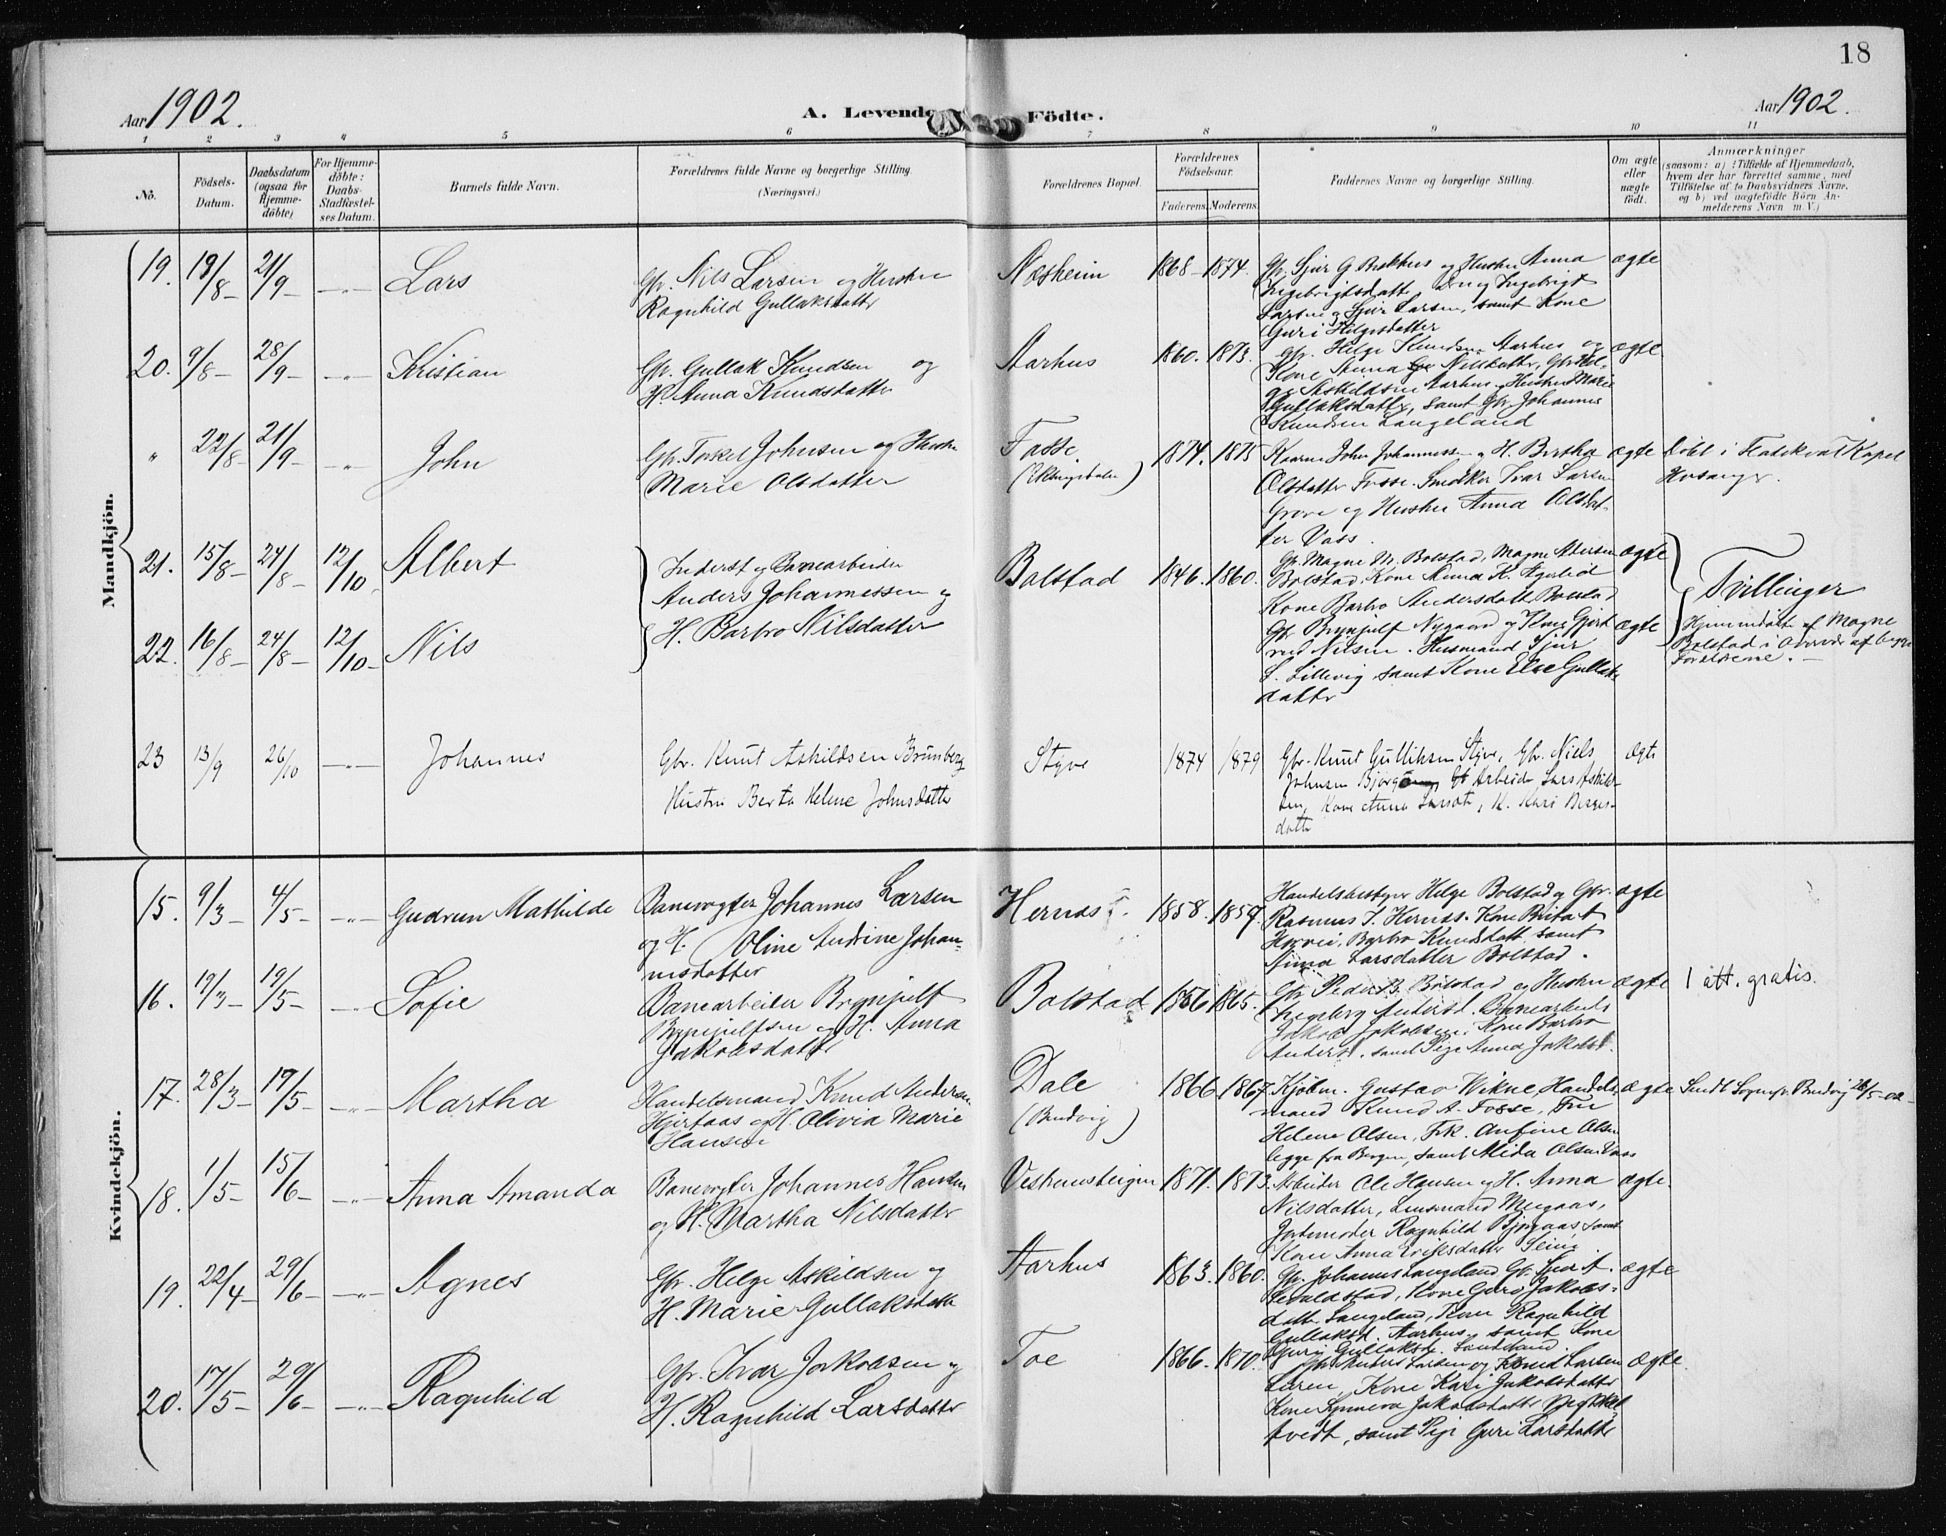 18
Aar 1902.
A. Levende Födte.
Aar 1902.
1 2 3 4 5 6 7 8 9 10 11
No.
Födsels-Datum.
Daabsdatum (ogsaa for Hjemme-döbte)
For Hjemme-döbte: Daabs-Stadfæstel-ses Datum.
Barnets fulde Navn.
Forældrenes fulde Navne og borgerlige Stilling. (Næringsvei.)
Forældrenes Bopæl.
Forældrenes Födselsaar.
Faderens. Moderens.
Faddernes Navne og borgerlige Stilling.
Om ægte eller uægte födt.
Anmærkninger
(saasom: a) i Tilfælde af Hjemmedaab,
hvem der har forrettet samme, med
Tilföielse af to Daabsvidners Navne,
og b) ved uægtefödte Börn An-
melderens Navn m. V.)
Mandkjön.
19. 19/8 - 21/9 - -"- Lars
Gbr. Nils Larsen og Hustru
Ragnhild Gullaksdatter
Næsheim 1868 - 1874.
Gbr. Sjur G Brækhus og Hustru Anna
Ingebrigtsdatter, Ingebrigt
Larsen og Sjur Larsen, samt Kone
Guri Helgesdatter
ægte
20. 9/8 - 28/9 - -"- Kristian
Gbr. Gullak Knudsen og
H. Anna Knudsdatter
Aarhus 1860. 1873.
Gbr. Helge Knudsen Aarhus og
Kone Anna Nilsdatter, Gbr. Hel-
ge Askildsen Aarhus, Hustru Marie
Gullaksdatter, samt Gbr. Johannes
Knudsen Langeland
ægte
" 22/8 - 21/9 - -"- John
Gbr. Torkel Johnsen og Hustru
Marie Olsdatter
Fosse. (Eksingedalen) 1874. 1875
Kaarm. John Johannessen og H. Birtha
Olsdatter Fosse. Smbrker Ivar Larsen
Grove og Hustru Anna Olsdat-
ter Vass.
ægte
Döbt i Flatekval Kapel
Hosanger.
21. 15/8 - 24/8 - 12/10 Albert
22. 16/8 - 24/8 - 12/10 - Nils
Inderst og Banearbeider
Anders Johannessen og
H. Barbro Nilsdatter
Bolstad 1846. 1860.
Gbr. Magne M. Bolstad, Magne Andersen
Bolstad, Kone Anna K.
Kone Barbro Andersdatter Bolstad
Gbr. Brynjulf Nygaard og Kone Gjert
rud Nilsen. Husmand Sjur
L. Lillevig samt Kone Else Gullaks
datter
ægte
ægte
Tvillinger
Hjemmedöbte af Magne
Bolstad i Overvær af begge
Forældrene. -
23 13/9 26/10 -"- Johannes
Gbr. Knut Askildsen Brunborg
Hustru Berta Helene Johnsdatter
Styve 1874 1879
Gbr. Knut Gulliksen Styve, Gbr. Niels
Johnsen Arbeider Lars Askild-
sen, Kone Anna Larsdt, K. Kari Børges-
datter
ægte
Kvindekjön.
15. 9/3 - 4/5 - -"- Gudrun Mathilde
Banevogter Johannes Larsen
og H. Oline Andrine Johan-
nesdatter
Hernæs. 1858. 1859.
Handelsbestyrer Helge Bolstad og Gbr.
Rasmus J. Hernæs. Kone Brita
Horvei, Barbro Knudsdatt. samt
Anna Larsdatter Bolstad.
ægte
16. 19/3 - 19/5 - -"- Sofie
Banearbeider Brynjulf
Brynjulfsen og H. Anna
Jakobsdatter
Bolstad 1856 1865.
Gbr. Peder Bolstad og Hustru
Ingeborg Andersd. Banearbeider
Jakob Jakobsen. Kone Barbro
Anders. samt Pige Anna Jakobsd.
ægte
1 att. gratis.
17. 28/3 - 19/5 - -"- Martha
Handelsmand Knud Andersen
Hjertaas og H. Olivia Marie
Hansen
Dale (Bruvig) 1866 1867.
Kjöbm. Gustav Wikne, Handels-
mand Knud A. Fosse, Fru
Helene Olsen, Frk. Anfine Olsen
begge fra Bergen, samt Alida Olsen Vass
ægte
Sendt Sognepr. Bruvig 26/5-02-
18. 1/5 - 15/6 - -"- Anna Amanda
Banevogter Johannes Hansen
og H. Martha Nilsdatter
1871. 1873.
Arbeider Ole Hansen og H. Anna
Nilsdatter, Lensmand Mugaas,
Jordemoder Ragnhild Bjørgaas samt
Kone Anna Eriksdatter
ægte.
19. 22/4 - 29/6 - -"- Agnes
Gbr. Helge Askildsen og
H. Marie Gullaksdatter
Aarhus 1863. 1860.
Gbr. Johannes Langeland Gbr. Sjur A.
Kone Guro Jakobs-
datter Langeland, Kone Ragnhild
Gullaksd. Aarhus samt Kone
Guri Gullaksd.
ægte
20. 17/5 - 29/6 - -"- Ragnhild
Gbr. Ivar Jakobsen og
H. Ragnhild Larsdatter
Toe 1866. 1870.
Larsen og Knud Larsen
Kone Kari Jakobsdatter
Kone Synneva Jakobsdatter
tvedt, samt Pige Guri Larsdatter
ægte.